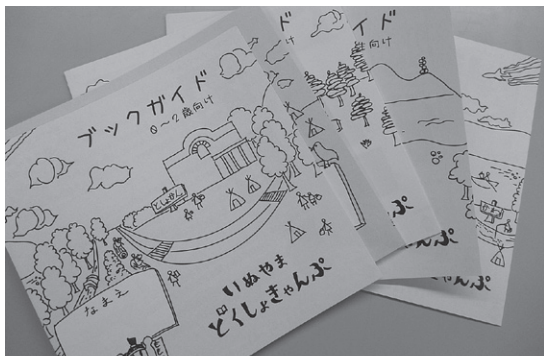 ブックガイド
0〜2歳向け
としょかん
なまえ
いぬやま
どくしょきゃんぷ
イド
向け
ゃんぷ